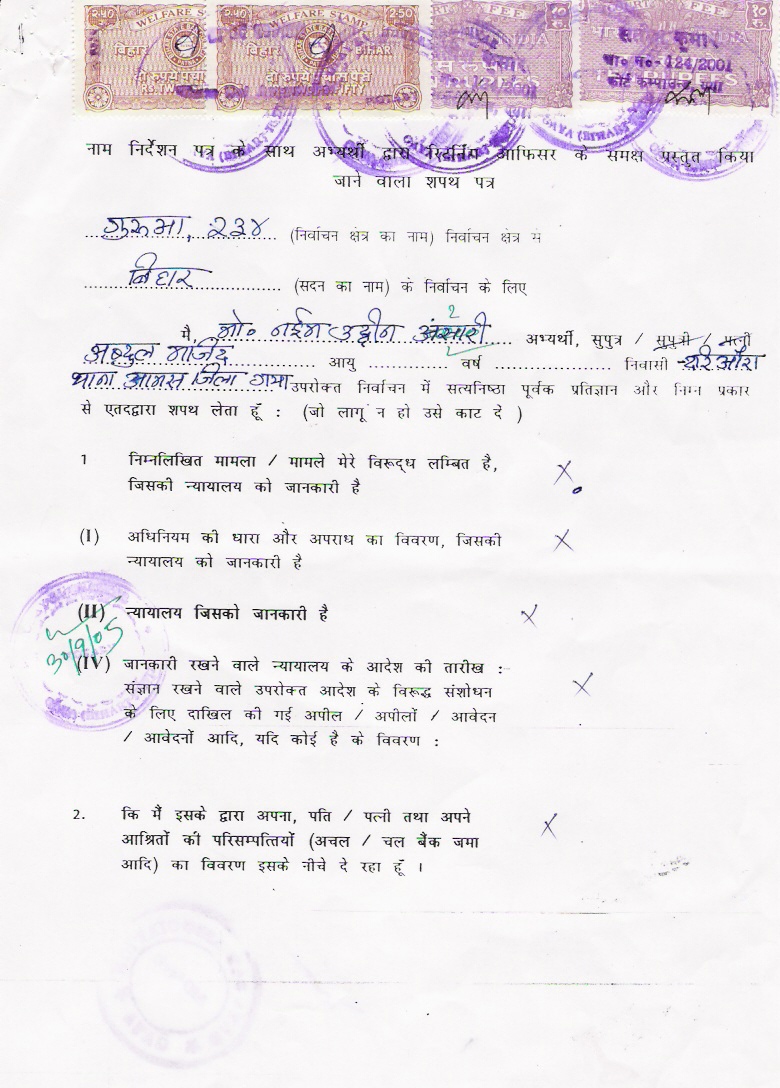 २.५० WELFARE STAMP
WELFARE STAMP 2.50
बिहार
बिहार BIHAR
दो रुपये पचास पैसे
कुमार
वा० न०- 124/2001
नाम निर्देशन पत्र के साथ अभ्यर्थी द्वारा रिटर्निंग आफिसर के समक्ष प्रस्तुत किया
जाने वाला शपथ पत्र
गुरुआ, २३४ (निर्वाचन क्षेत्र का नाम) निर्वाचन क्षेत्र में
बिहार (सदन का नाम) के निर्वाचन के लिए
मै, मो० नईम उद्दीन अंसारी अभ्यर्थी, सुपुत्र / सुपुत्री / पत्नी
अब्दुल माजिद आयु ............. वर्ष ................... निवासी
थाना आमस जिला गया उपरोक्त निर्वाचन में सत्यनिष्ठा पूर्वक प्रतिज्ञान और निम्न प्रकार
से एतदद्वारा शपथ लेता हूँ : (जो लागू न हो उसे काट दे )
1 निम्नलिखित मामला / मामले मेरे विरूद्ध लम्बित है, X
जिसकी न्यायालय को जानकारी है
(I) अधिनियम की धारा और अपराध का विवरण, जिसकी X
न्यायालय को जानकारी है
(II) न्यायालय जिसको जानकारी है X
30/9/05
(IV) जानकारी रखने वाले न्यायालय के आदेश की तारीख :
संज्ञान रखने वाले उपरोक्त आदेश के विरूद्ध संशोधन X
के लिए दाखिल की गई अपील / अपीलों / आवेदन
/ आवेदनों आदि, यदि कोई है के विवरण :
2. कि मैं इसके द्वारा अपना, पति / पत्नी तथा अपने X
आश्रितों की परिसम्पत्तियों (अचल / चल बैंक जमा
आदि) का विवरण इसके नीचे दे रहा हूँ ।